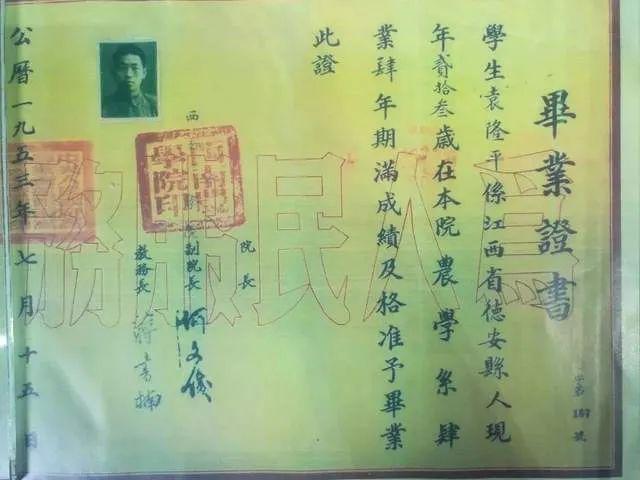 畢業證書
學生袁隆平係江西省德安縣人現
年貳拾叁歲在本院農學系肆
業肆年期滿成績及格准予畢業
此證
院長
副院長 何文俊
教務長 蔣書楠
公曆一九五三年七月十五日
為人民服務
西南農學院印